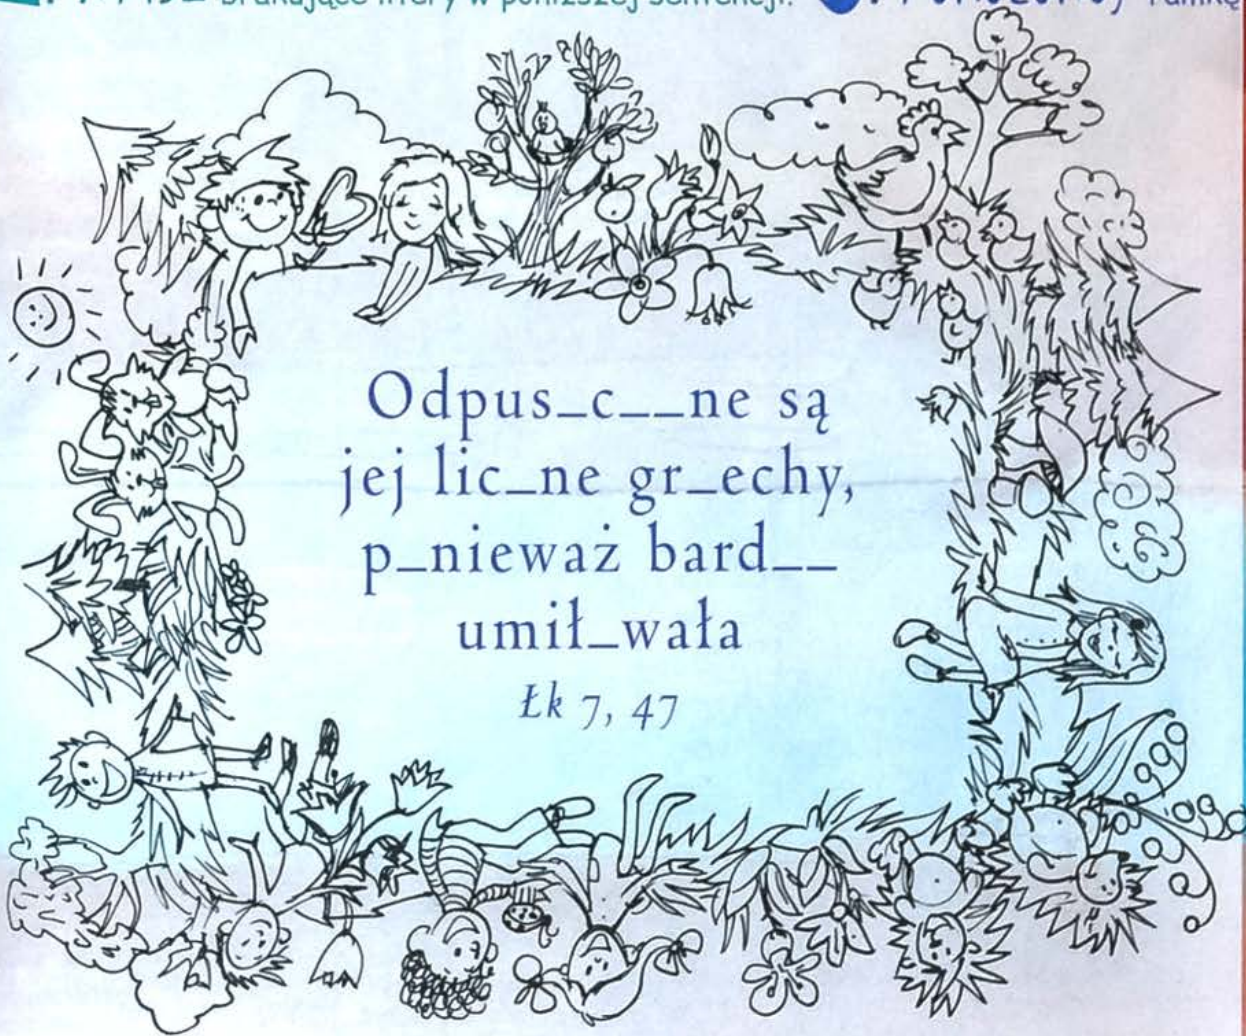 brakujące litery w poniższej sentencji.
Odpus_c__ne są
jej lic_ne gr_echy,
p_nieważ bard__
umił_wała
Łk 7, 47